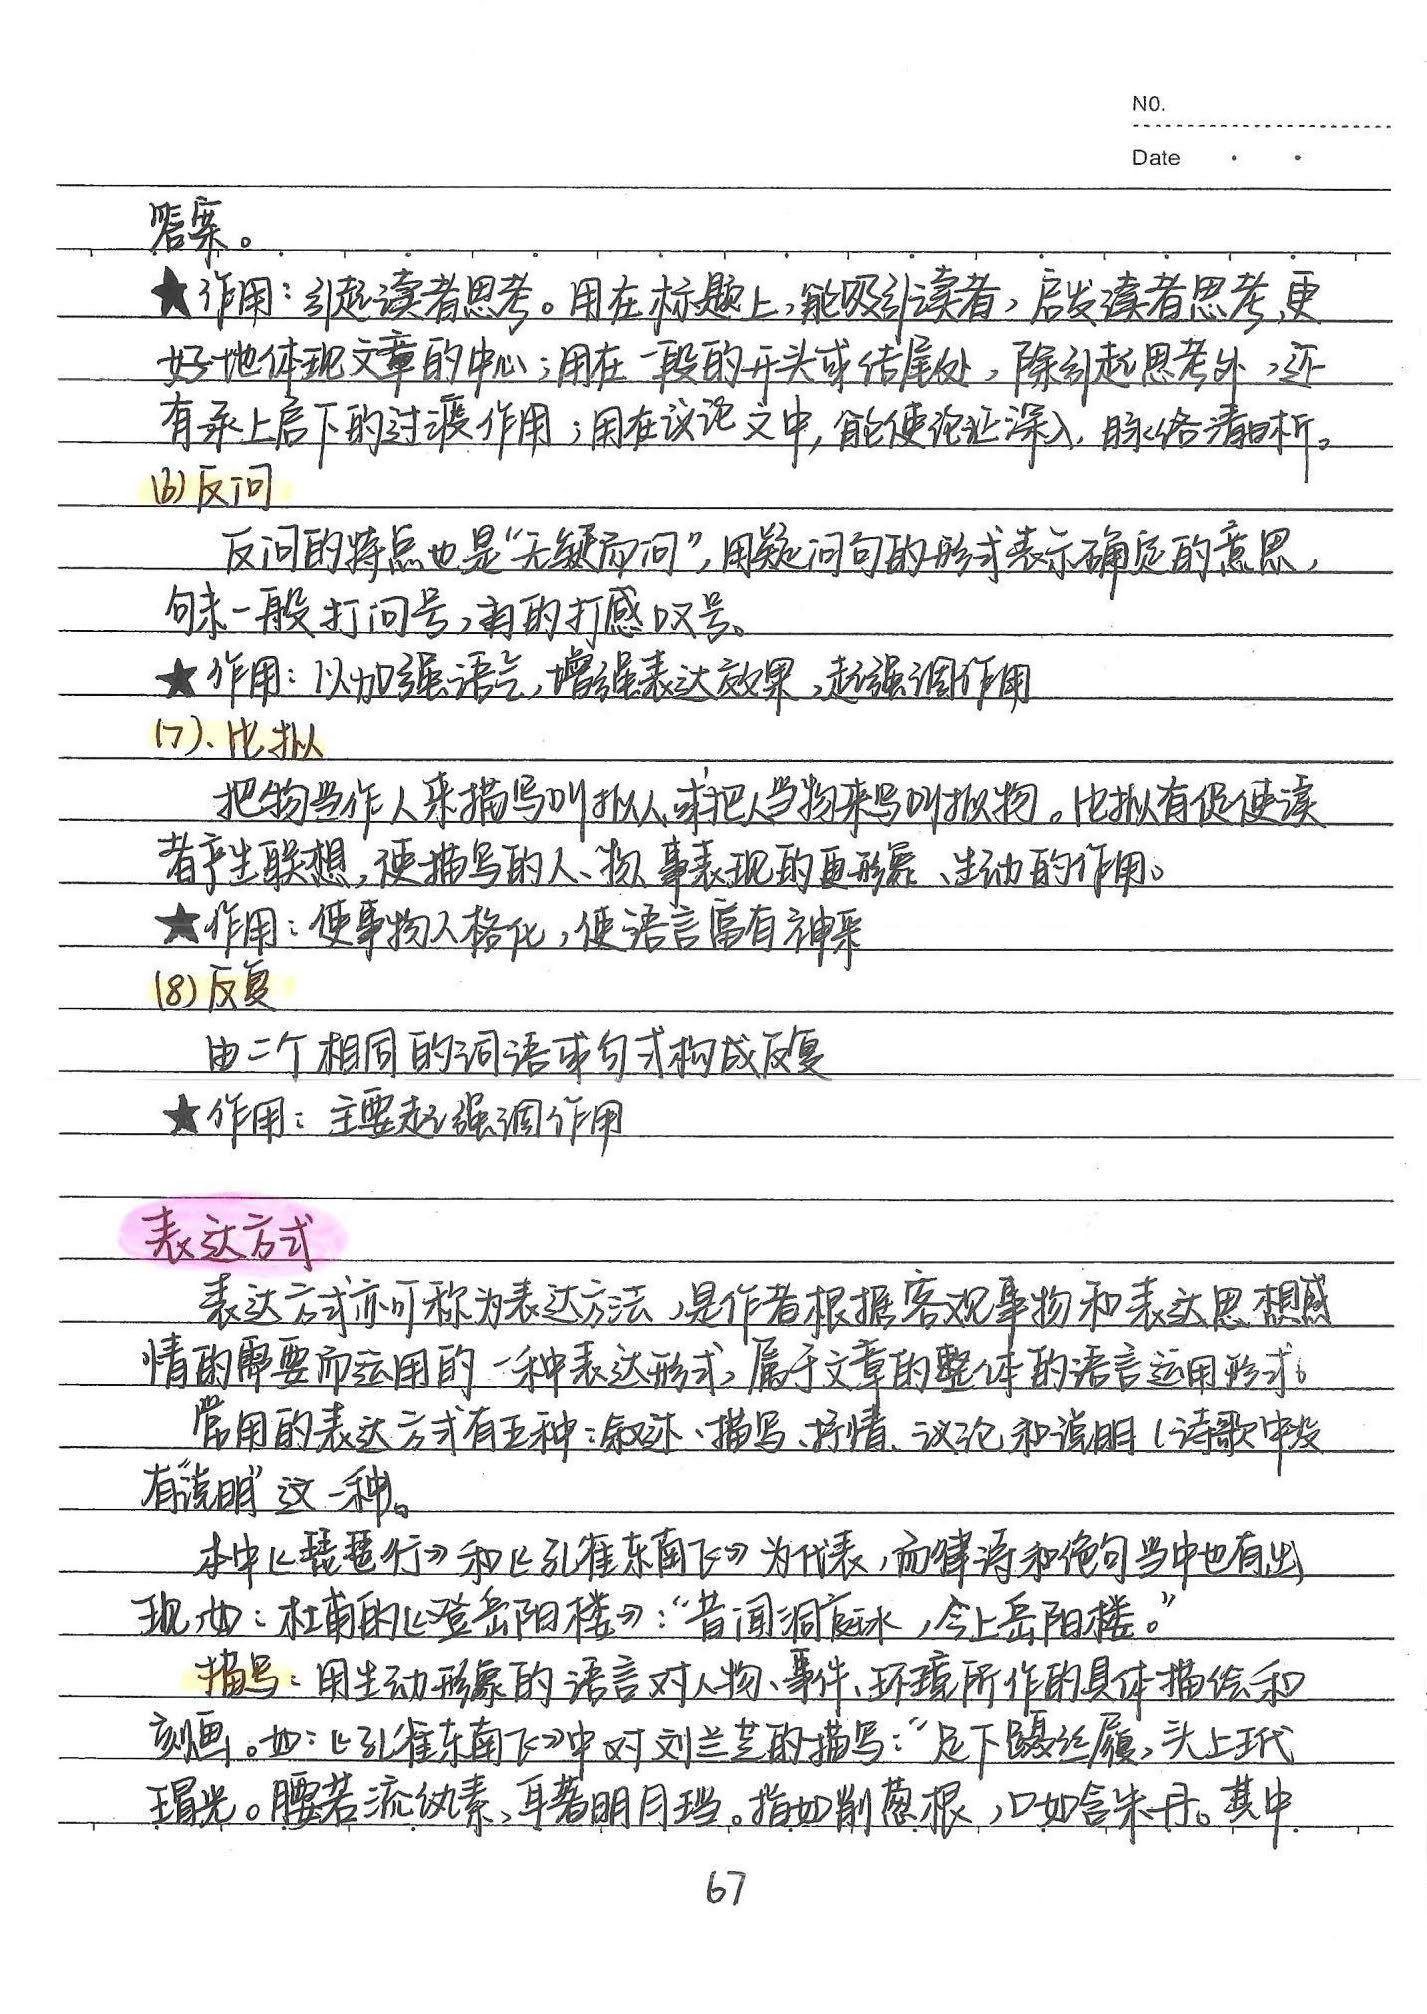 NO.
Date
答案。
★作用：引起读者思考。用在标题上，能吸引读者，启发读者思考，更
好地体现文章的中心；用在一段的开头或结尾处，除引起思考外，还
有承上启下的过渡作用；用在议论文中，能使论证深入，脉络清晰。
(6)反问
反问的特点也是“无疑而问”，用疑问句的形式表示确定的意思，
句末一般打问号，有的打感叹号。
★作用：以加强语气，增强表达效果，起强调作用
(7)、比拟
把物当作人来描写叫拟人，或把人当物来写叫拟物。比拟有促使读
者产生联想，使描写的人、物、事表现的更形象、生动的作用。
★作用：使事物人格化，使语言富有神采
(8)反复
由二个相同的词语或句式构成反复
★作用：主要起强调作用
表达方式
表达方式亦可称为表达方法，是作者根据客观事物和表达思想感
情的需要而运用的一种表达形式，属于文章的整体的语言运用形式。
常用的表达方式有五种：叙述、描写、抒情、议论和说明（诗歌中没
有“说明”这一种。
本中《琵琶行》和《孔雀东南飞》为代表，而律诗和绝句当中也有出
现，如：杜甫的《登岳阳楼》：“昔闻洞庭水，今上岳阳楼。”
描写：用生动形象的语言对人物、事件、环境所作的具体描绘和
刻画。如：《孔雀东南飞》中对刘兰芝的描写：“足下蹑丝履，头上玳
瑁光。腰若流纨素，耳著明月珰。指如削葱根，口如含朱丹。其中
67